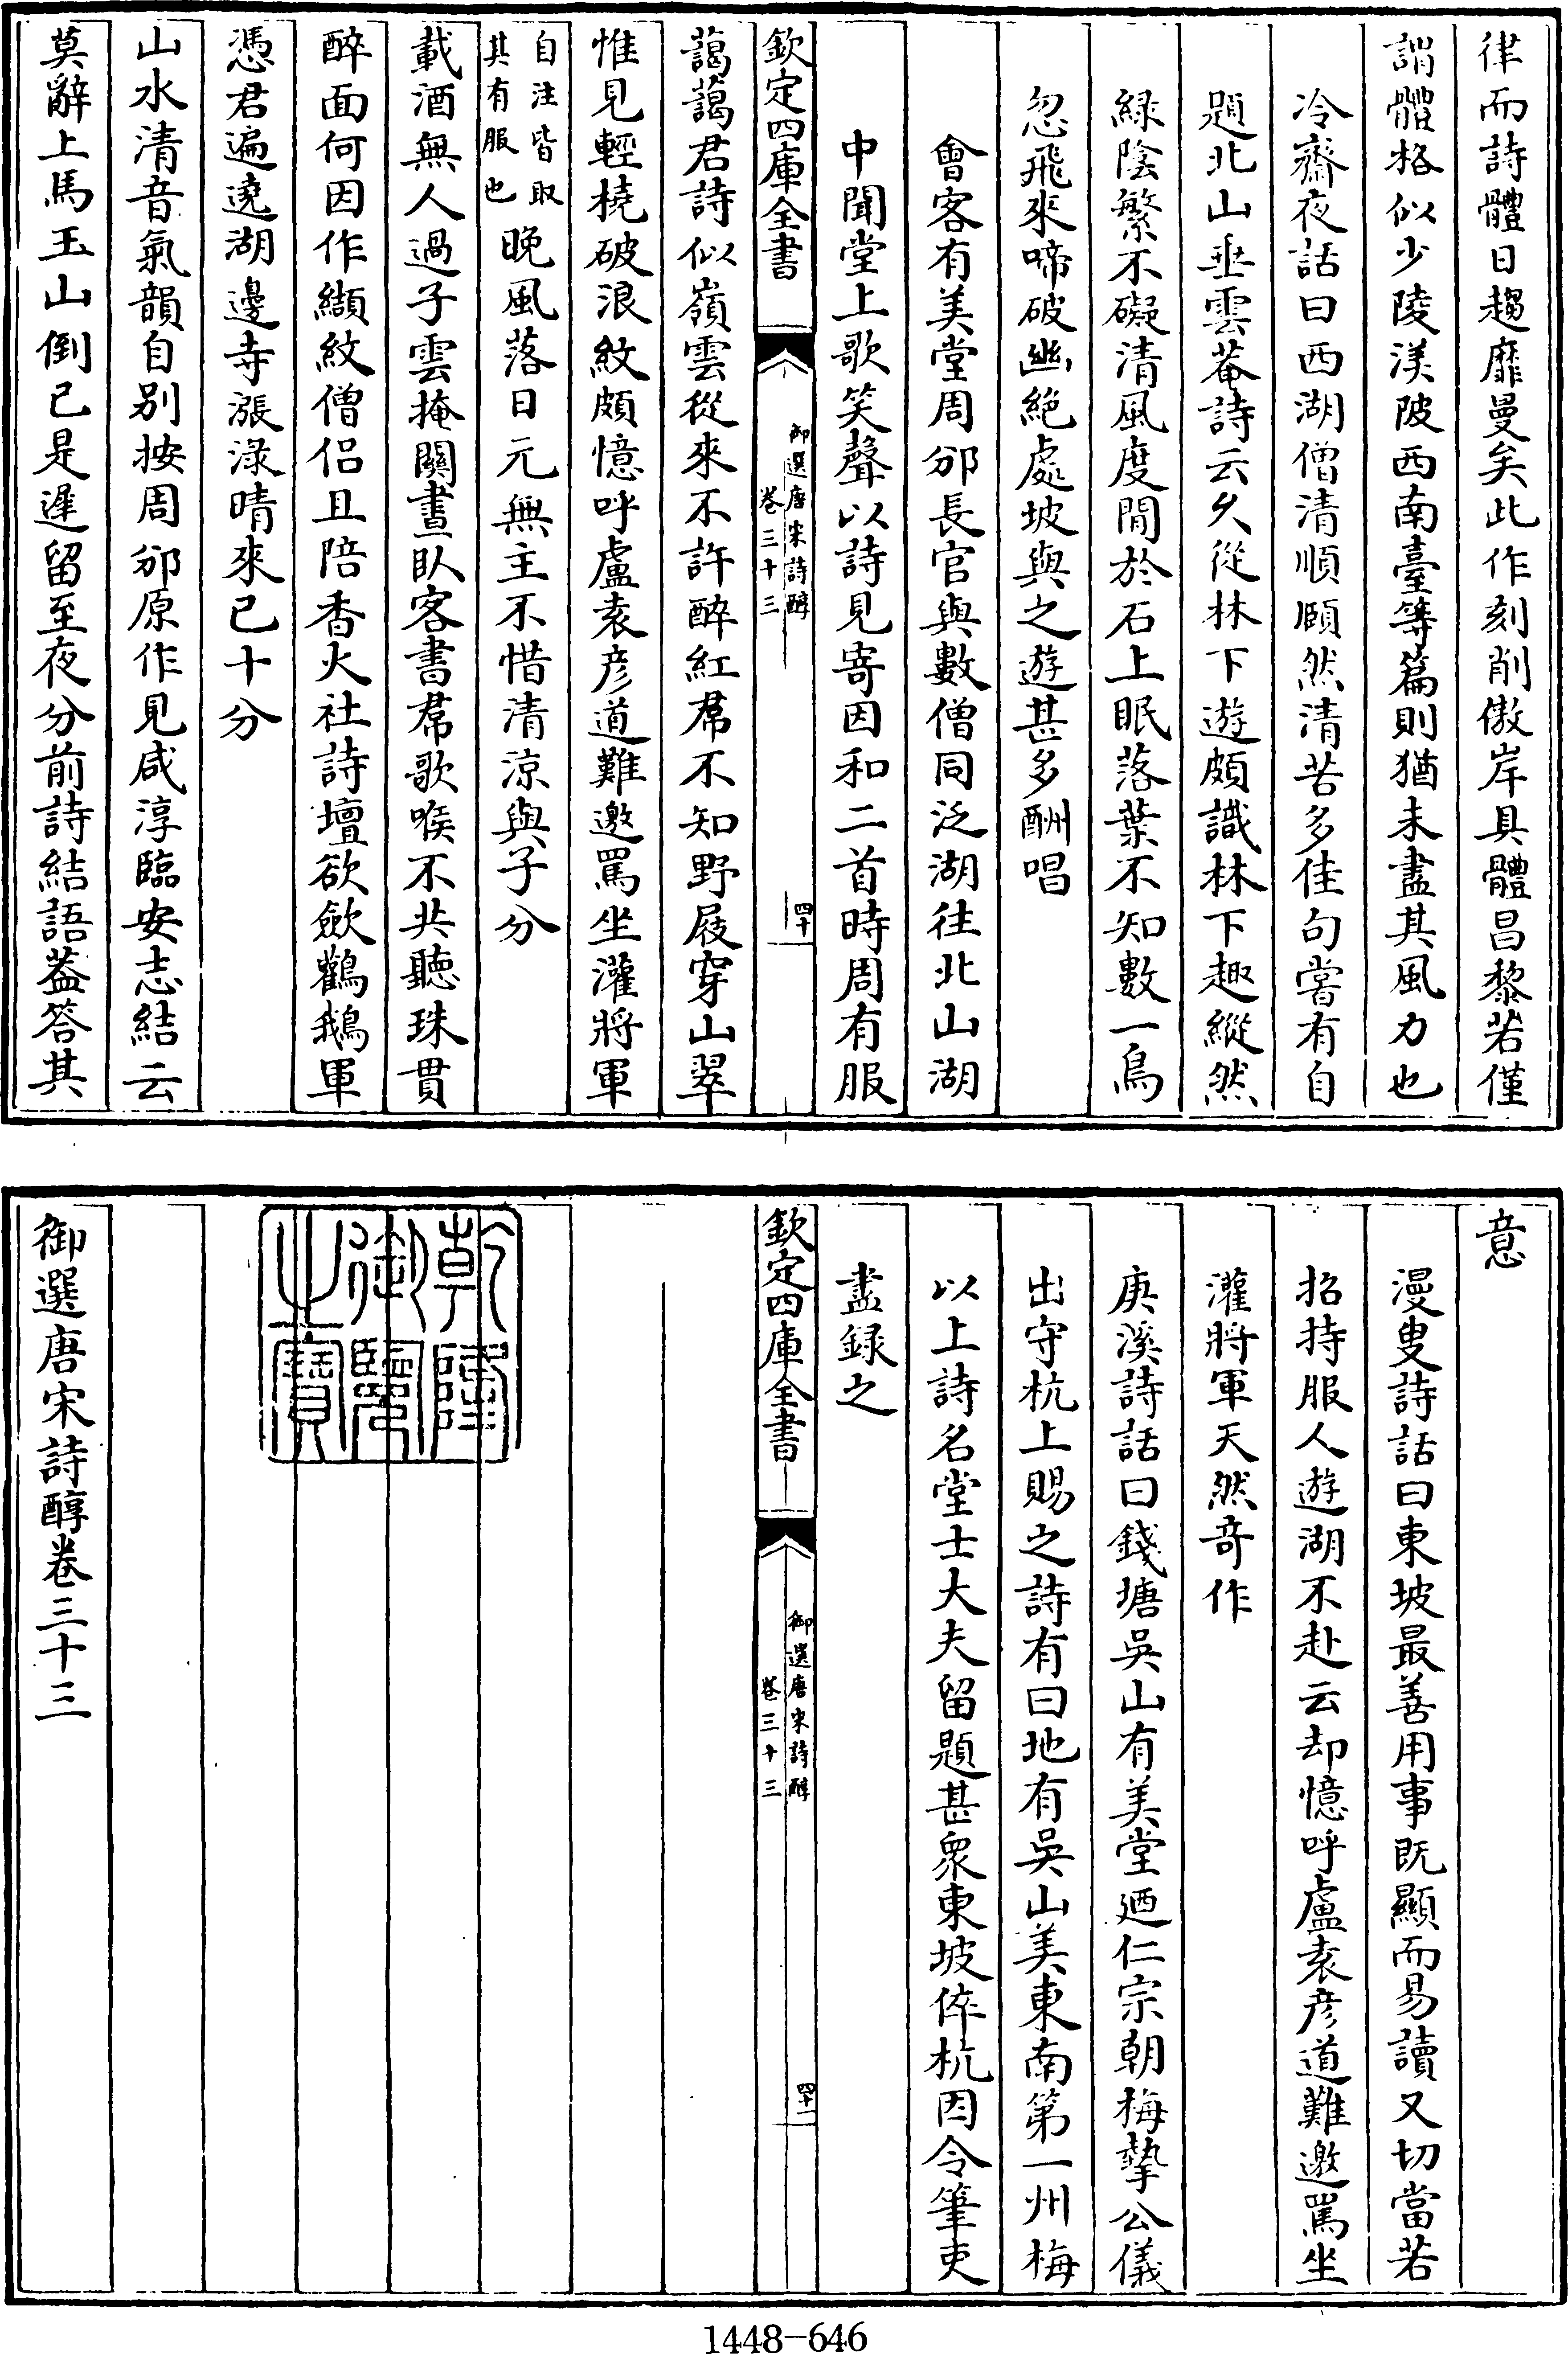 律而詩體日趨靡曼矣此作刻削傲岸具體昌黎若僅
謂體格似少陵渼陂西南臺等篇則猶未盡其風力也
冷齋夜話曰西湖僧清順頤然清苦多佳句嘗有自
題北山垂雲菴詩云久從林下遊頗識林下趣縱然
緑陰繁不礙清風度閒於石上眠落葉不知數一鳥
忽飛來啼破幽絶處坡與之遊甚多酬唱
會客有美堂周邠長官與數僧同泛湖往北山湖
中聞堂上歌笑聲以詩見寄因和二首時周有服
欽定四庫全書
御選唐宋詩醇
卷三十三
四十
藹藹君詩似嶺雲從來不許醉紅裠不知野屐穿山翠
惟見輕橈破浪紋頗憶呼盧袁彦道難邀罵坐灌將軍
自注皆取
其有服也
晩風落日元無主不惜清涼與子分
載酒無人過子雲掩關晝臥客書裠歌喉不共聽珠貫
醉面何因作纈紋僧侶且陪香火社詩壇欲歛鸛鵝軍
憑君遍遶湖邊寺漲渌晴來已十分
山水清音氣韻自别按周邠原作見咸淳臨安志結云
莫辭上馬玉山倒已是遲留至夜分前詩結語葢答其
意
漫叟詩話曰東坡最善用事既顯而易讀又切當若
招持服人遊湖不赴云却憶呼盧袁彦道難邀罵坐
灌將軍天然奇作
庚溪詩話曰錢塘吳山有美堂廼仁宗朝梅摯公儀
出守杭上賜之詩有曰地有吳山美東南第一州梅
以上詩名堂士大夫留題甚衆東坡倅杭因令筆吏
盡録之
欽定四庫全書
御選唐宋詩醇
卷三十三
四十一
乾隆御覽之寶
御選唐宋詩醇卷三十三
1448-646